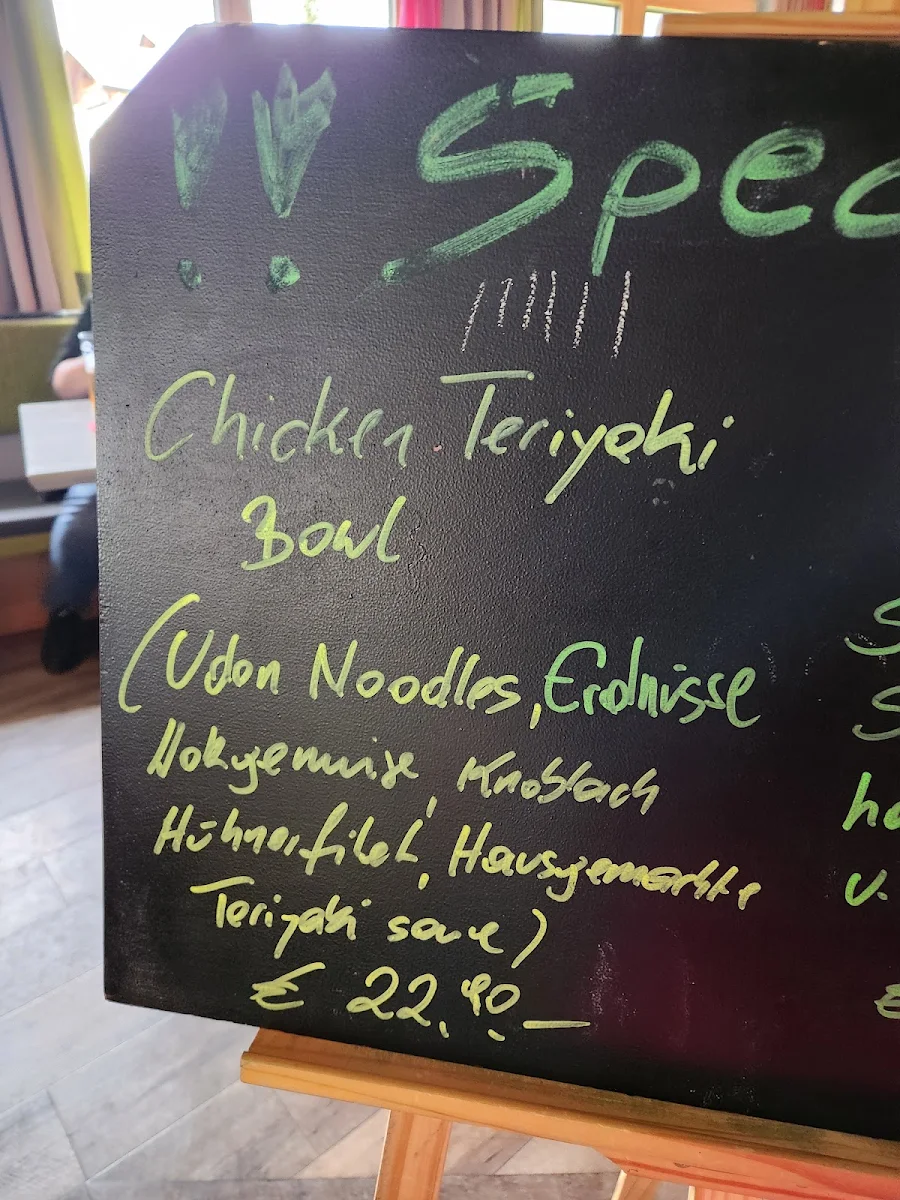 !! Spec
Chicken Teriyaki
Bowl
(Udon Noodles, Erdnisse
Wokgemüse, Knoblach
Hühnerfilet, Hausgemachte
Teriyaki sauce)
€ 22,90 —
S
S
ha
u.
€